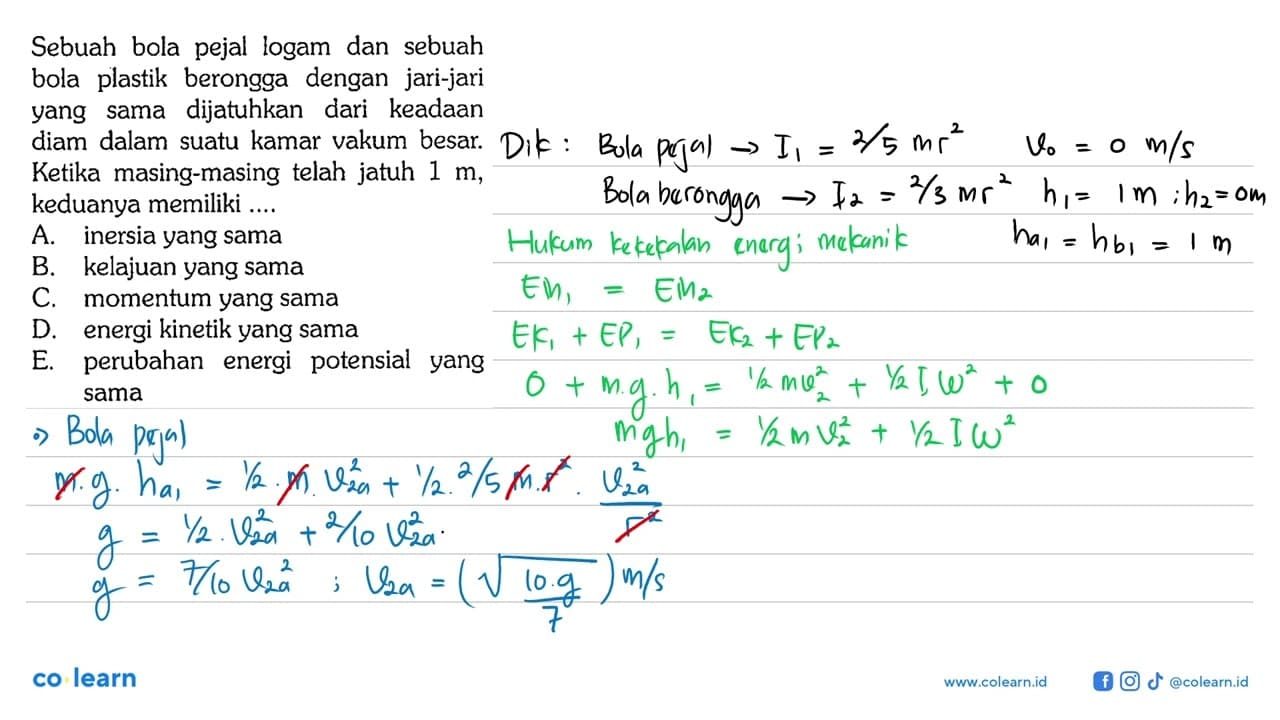 Sebuah bola pejal logam dan sebuah
bola plastik berongga dengan jari-jari
yang sama dijatuhkan dari keadaan
diam dalam suatu kamar vakum besar.
Ketika masing-masing telah jatuh 1 m,
keduanya memiliki ....
A. inersia yang sama
B. kelajuan yang sama
C. momentum yang sama
D. energi kinetik yang sama
E. perubahan energi potensial yang
sama
Dik : Bola pejal → I₁ = 2/5 mr² v₀ = 0 m/s
Bola berongga → I₂ = 2/3 mr² h₁ = 1 m ; h₂ = 0 m
ha₁ = hb₁ = 1 m
Hukum kekekalan energi mekanik
EM₁ = EM₂
EK₁ + EP₁ = EK₂ + EP₂
0 + m.g.h₁ = 1/2 mv₂² + 1/2 I ω² + 0
mgh₁ = 1/2 m v₂² + 1/2 I ω²
•> Bola pejal
m.g. ha₁ = 1/2 . m. v₂a² + 1/2 . 2/5 m.r² . v₂a²/r²
g = 1/2 . v₂a² + 2/10 v₂a².
g = 7/10 v₂a² ; v₂a = (√10.g/7) m/s
co learn
www.colearn.id
@colearn.id